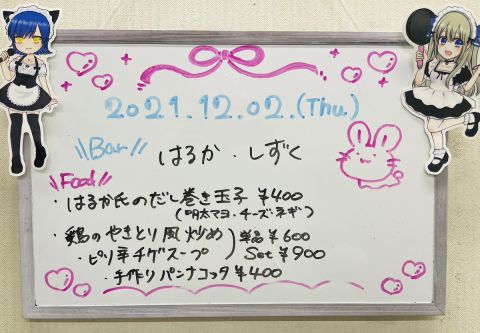 2021.12.02.(Thu.)
\\Bar// はるか・しずく
\\Food//
・はるか氏のだし巻き玉子 ¥400
(明太マヨ・チーズ・ネギ)
・鶏のやきとり風炒め 単品¥600
・ピリ辛チゲスープ Set ¥900
・手作りパンナコッタ ¥400